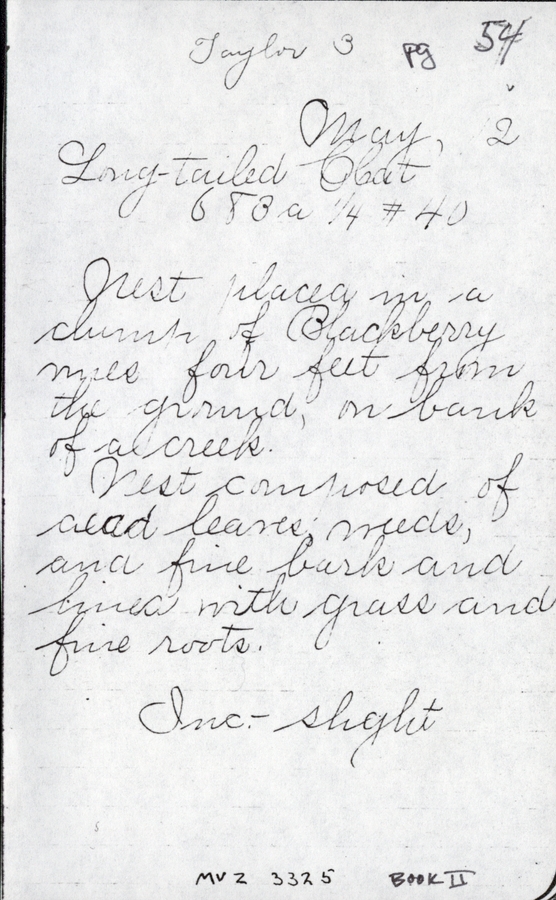 Taylor 3 pg 54
May, 2
Long-tailed Chat
683a 1/4 #40
Nest placed in a
clump of Blackberry
vines four feet from
the ground, on bank
of a creek.
Nest composed of
dead leaves, weeds,
and fine bark and
lined with grass and
fine roots.
Inc.- slight
MVZ 3325 BOOK II